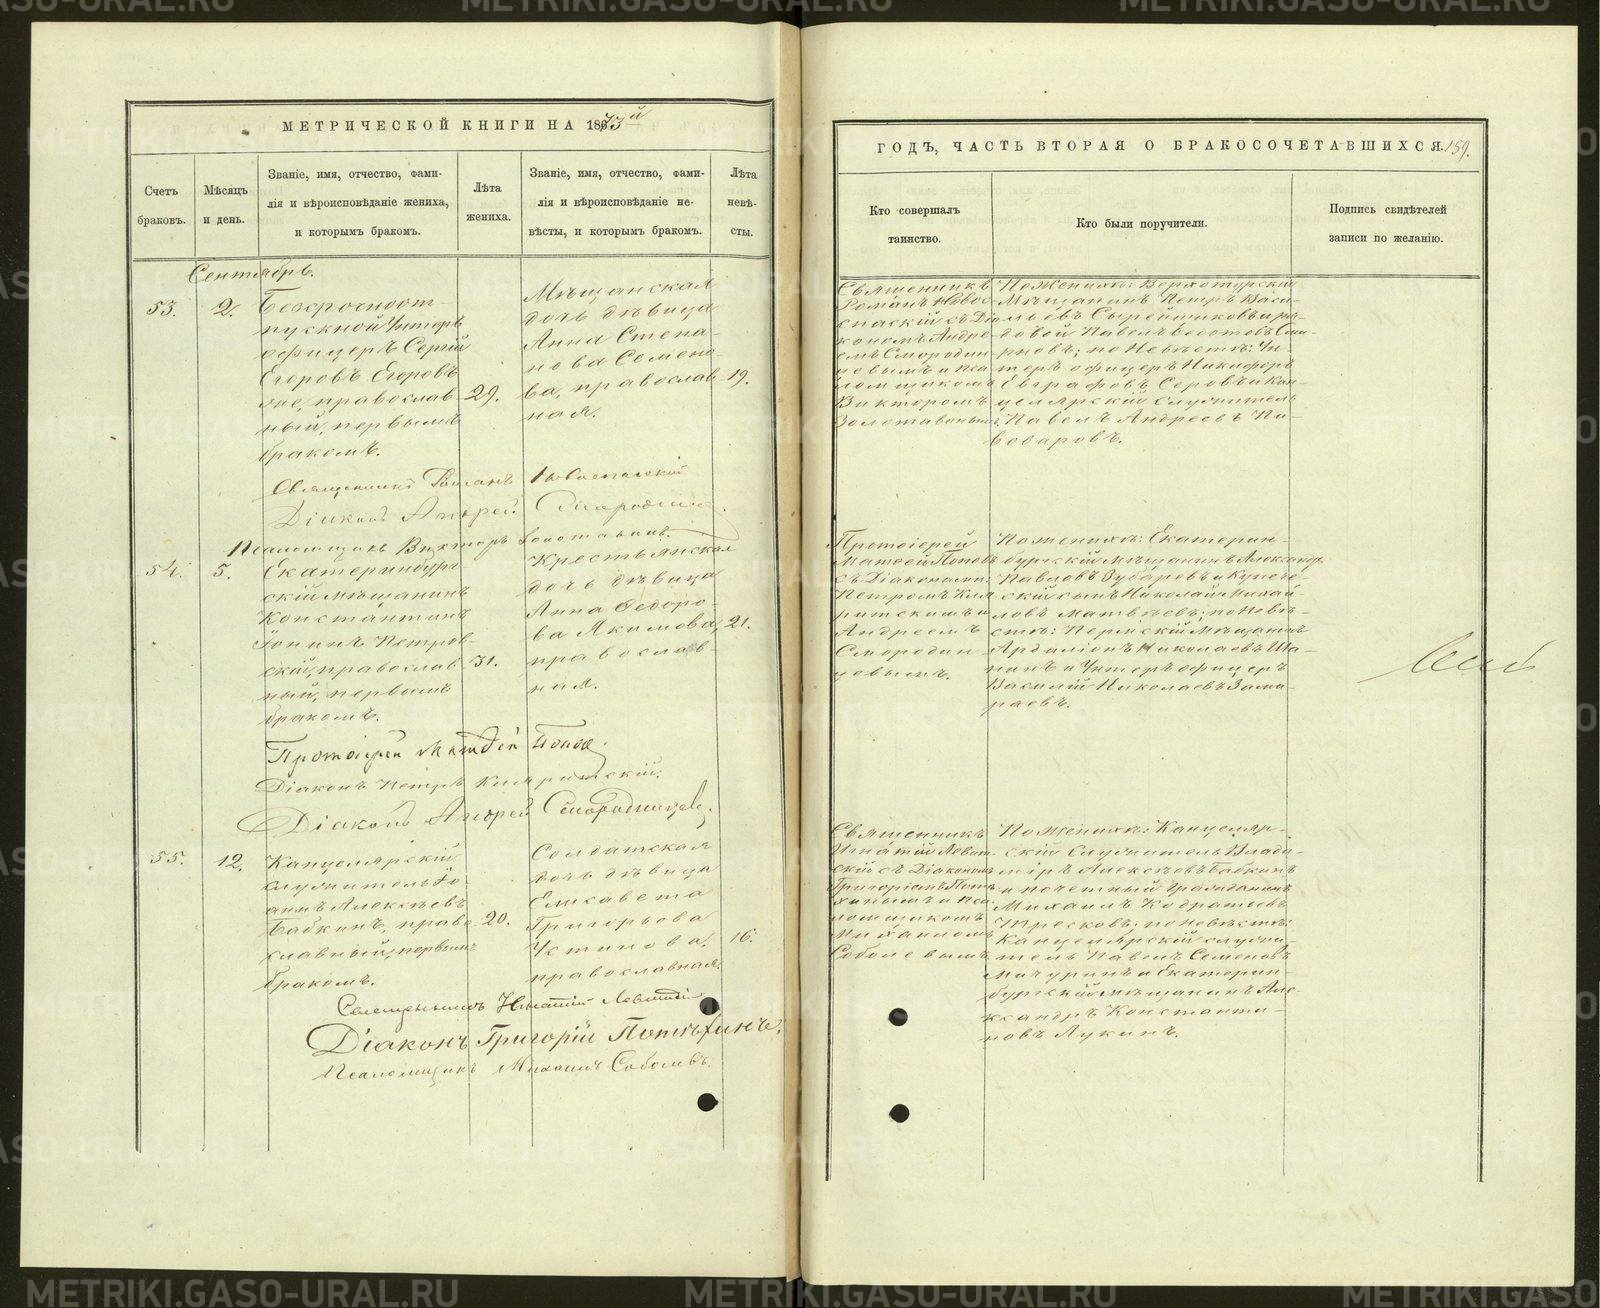 МЕТРИЧЕСКОЙ КНИГИ НА 1873й
Счетъ браковъ.
Мѣсяцъ и день.
Званіе, имя, отчество, фами-
лія и вѣроисповѣданіе жениха,
и которымъ бракомъ.
Лѣта жениха.
Званіе, имя, отчество, фами-
лія и вѣроисповѣданіе не-
вѣсты, и которымъ бракомъ.
Лѣта невѣ-
сты.
Сентябрь.
53.
2.
Безсрочноот-
пускной Унтеръ
офицеръ Сергій
Егоровъ Егоровъ
православ
ный, первымъ
бракомъ.
29.
Мѣщанская
дочь дѣвица
Анна Степа-
нова Семено
ва, православ
ная.
19.
Священникъ Романъ Новоспасскій
Діаконъ Андрей
Псаломщикъ Викторъ
54.
5.
Екатеринбург
скій мѣщанинъ
Константинъ
Іонинъ Петров-
скій, православ
ный, первымъ
бракомъ.
31.
Крестьянская
дочь дѣвица
Анна Ѳедоро-
ва Якимова,
православ-
ная.
21.
Протоіерей Матѳей Попов
Діаконъ Петръ
Діаконъ Андрей Смородинцевъ.
55.
12.
Канцелярскій
служитель Іо-
аннъ Алексѣевъ
Бабкинъ, право
славный, первымъ
бракомъ.
20.
Солдатская
дочь дѣвица
Елисавета
Григорьева
Устинова,
православная.
16.
Священникъ Игнатій Левитскій
Діаконъ Григорій Потѣхинъ.
Псаломщикъ Михаилъ Соболевъ.
ГОДЪ, ЧАСТЬ ВТОРАЯ О БРАКОСОЧЕТАВШИХСЯ. 159.
Кто совершалъ
таинство.
Кто были поручители.
Подпись свидѣтелей
записи по желанію.
Священникъ
Романъ Новос-
паскій съ Діа
кономъ Андре
емъ Смородин-
цевымъ и Пса
ломщикомъ
Викторомъ
По женихѣ: Верхотурскій
Мѣщанинъ Петръ Васи-
довой Павелъ Ѳедотовъ Сми-
рновъ; по Невѣстѣ: Ун-
теръ офицеръ Никифоръ
Евграфовъ Серовъ и Кан-
целярскій Служитель
Павелъ Андреевъ Пи-
воваровъ.
Протоіерей
Матѳей Поповъ
съ Діаконами:
Андреемъ
Смородин
цевымъ.
По женихѣ: Екатерин-
бургскій мѣщанинъ Александръ
Павловъ Зубаровъ и Купече-
скій сынъ Николай Михай-
ловъ Матвѣевъ; по Невѣ-
стѣ: Пермскій Мѣщанинъ
Ардаліонъ Николаевъ Ша-
нинъ и Унтеръ офицеръ
Василій Николаевъ Зама-
раевъ.
Священникъ
Игнатій Левит-
скій съ Діакономъ
Григоріемъ Потѣ-
хинымъ и Пса
ломщикомъ
Михаиломъ
Соболевымъ
По женихѣ: Канцеляр-
скій Служитель Влади-
міръ Алексѣевъ Бабкинъ
и почетный Гражданинъ
Михаилъ Кодратьевъ
по невѣстѣ:
Канцелярскій служи-
тель Павелъ Семеновъ
Мичуринъ и Екатерин-
бургскій мѣщанинъ Але-
ксандръ Константи-
новъ Лукинъ.
METRIKI.GASO-URAL.RU